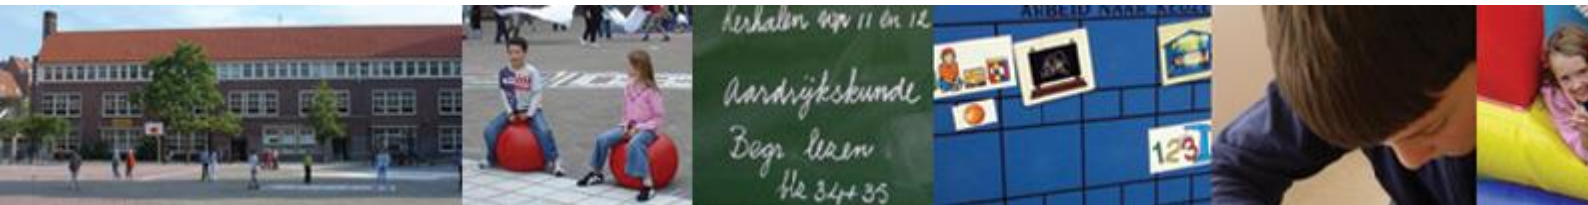 Verhalen
11 en 12
Aardrijkskunde
Begr lezen
blz 34+35
ARBEID NAAR KEUZE
123